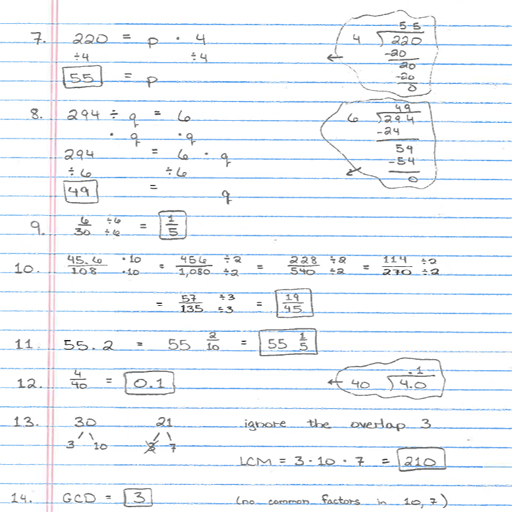 7. 220 = p · 4
÷4 ÷4
55 = p
55
4 220
-20
20
-20
0
8. 294 ÷ q = 6
· q · q
294 = 6 · q
÷6 ÷6
49 = q
49
6 294
-24
54
-54
0
9. 6/30 ÷6/÷6 = 1/5
10. 45.6/108 ·10/·10 = 456/1,080 ÷2/÷2 = 228/540 ÷2/÷2 = 114/270 ÷2/÷2
= 57/135 ÷3/÷3 = 19/45
11. 55.2 = 55 2/10 = 55 1/5
12. 4/40 = 0.1
.1
40 4.0
13. 30 21 ignore the overlap 3
3 10 3 7
LCM = 3 · 10 · 7 = 210
14. GCD = 3 (no common factors in 10, 7)